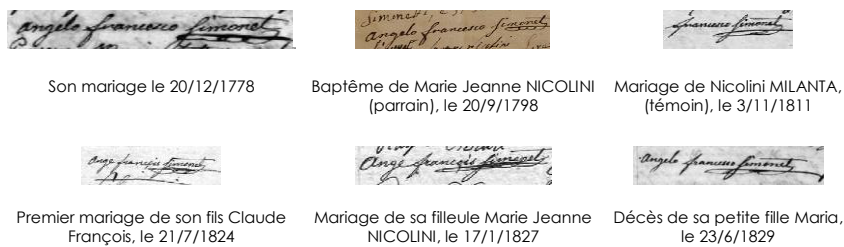 angelo francesco Simonet
Son mariage le 20/12/1778
angelo francesco Simonet
Baptême de Marie Jeanne NICOLINI
(parrain), le 20/9/1798
francesco Simonet
Mariage de Nicolini MILANTA,
(témoin), le 3/11/1811
ange françois Simonet
Premier mariage de son fils Claude
François, le 21/7/1824
Ange françois Simonet
Mariage de sa filleule Marie Jeanne
NICOLINI, le 17/1/1827
Angelo francesco Simonet
Décès de sa petite fille Maria,
le 23/6/1829